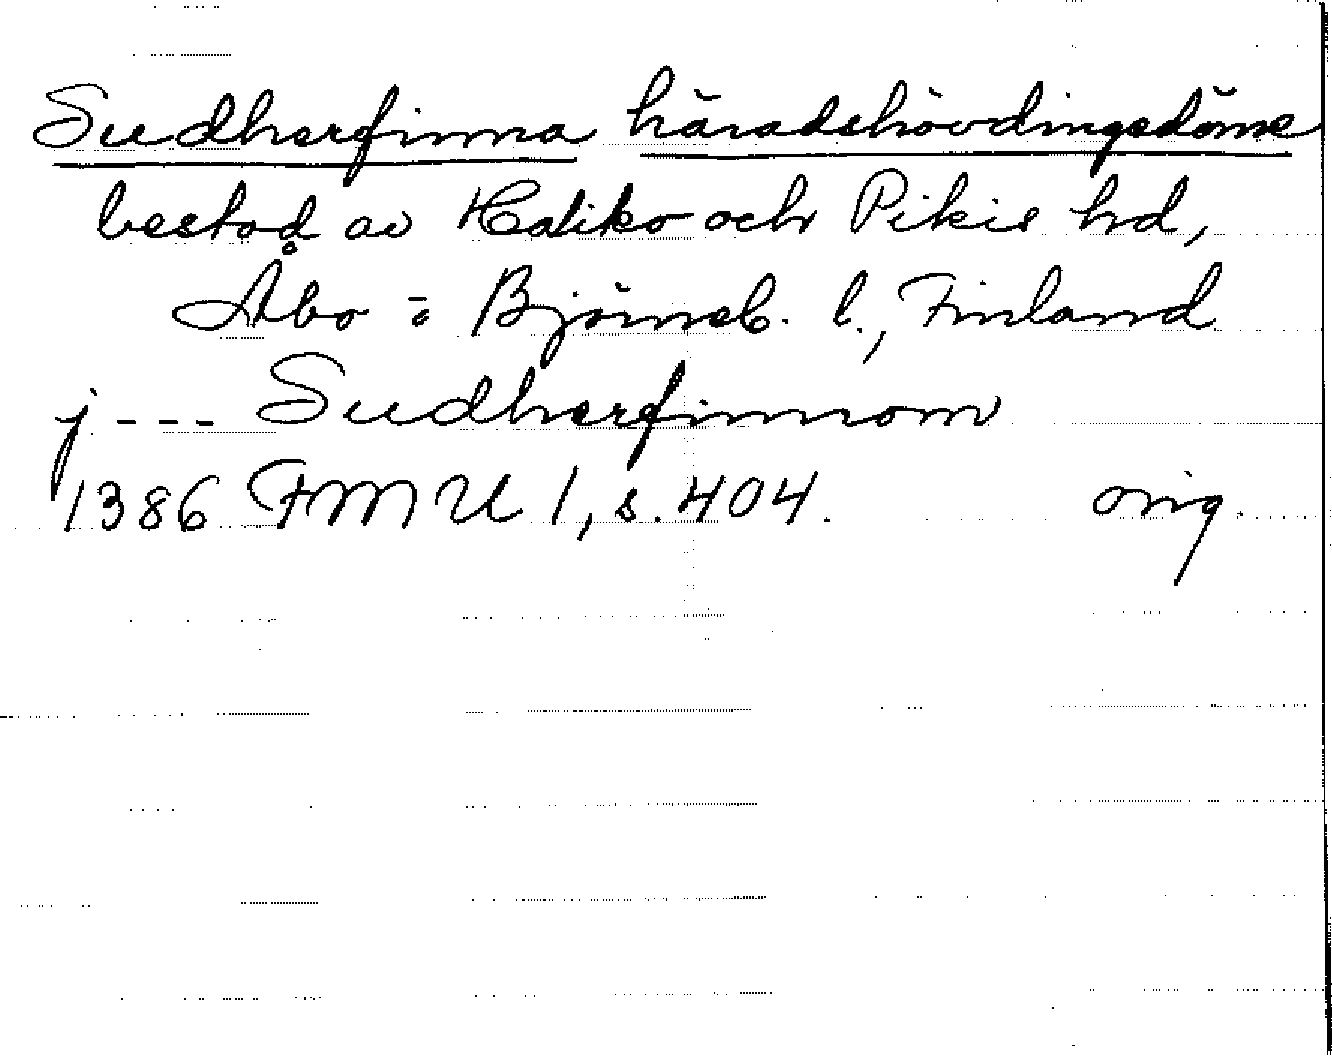 Sudherfinna häradshövdingedöme
bestod av Haliko och Pikis hd,
Åbo o Björneb. l., Finland
j - - - Sudherfinnom
1386 FMU 1, s. 404. orig.